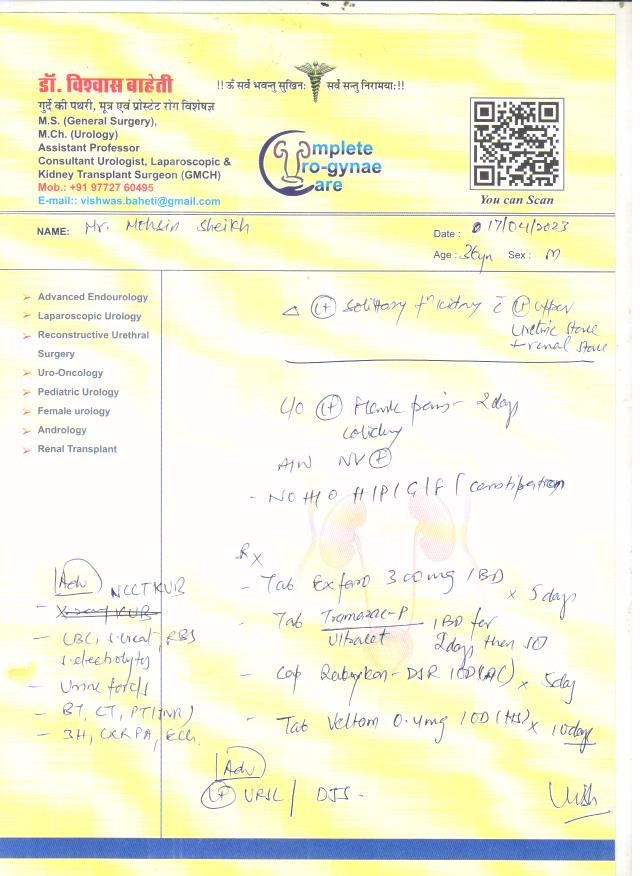 !! ॐ सर्वे भवन्तु सुखिनः सर्वे सन्तु निरामयाः !!
डॉ. विश्वास बाहेती
गुर्दे की पथरी, मूत्र एवं प्रोस्टेट रोग विशेषज्ञ
M.S. (General Surgery),
M.Ch. (Urology)
Assistant Professor
Consultant Urologist, Laparoscopic &
Kidney Transplant Surgeon (GMCH)
Mob.: +91 97727 60495
E-mail:: vishwas.baheti@gmail.com
Complete
Uro-gynae
Care
You can Scan
NAME: Mr. Mohsin Sheikh
Date : 17/04/2023
Age : 36yr Sex : M
Advanced Endourology
Laparoscopic Urology
Reconstructive Urethral
Surgery
Uro-Oncology
Pediatric Urology
Female urology
Andrology
Renal Transplant
△ (Lt) Solitary fn kidney c̄ (Lt) upper
Ureteric stone
+ renal stone
C/O (Lt) Flank pain - 2 days
colicky
A/W NV (+)
- NO H/O H/P/G/F / constipation
Rx
- Tab 300mg 1BD x 5 days
- Tab Tramazac-P 1BD for
Ultracet 2days then SO
- Cap DSR 1OD (AC) x 5day
- Tab Veltam 0.4mg 1OD (HS) x 10days
Adv
NCCT KUB
- X-ray KUB
- CBC, S.creat, RBS
S.electrolytes
- Urine
- BT, CT, PT(INR)
- 3H, CXR PA, ECG
Adv
(Lt) URSL / DJS -
Vish